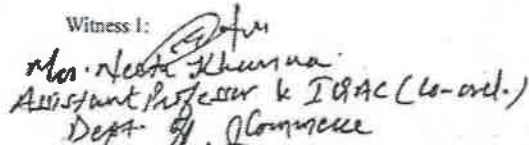 Witness 1:
Mrs. Neeta Khurana
Assistant Professor & IQAC (Co-ord.)
Dept. of Commerce